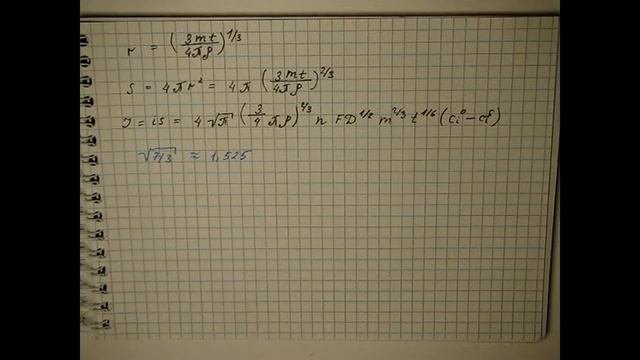 r = (3mt/4πρ)^1/3
S = 4πr² = 4π (3mt/4πρ)^2/3
I = iS = 4√π (3/4 πρ)^2/3 n F D^1/2 m^2/3 t^1/6 (ci° - ciˢ)
√7/3 ≈ 1,525